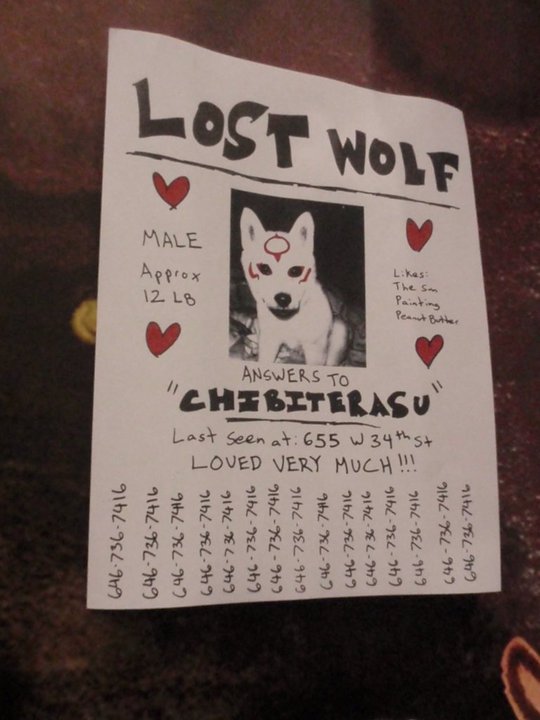 LOST WOLF
MALE
Approx
12 LB
Likes:
The Sun
Painting
Peanut Butter
ANSWERS TO
"CHIBITERASU"
Last Seen at: 655 W 34th St
LOVED VERY MUCH!!!
646-736-7416
646-736-7416
646-736-7416
646-736-7416
646-736-7416
646-736-7416
646-736-7416
646-736-7416
646-736-7416
646-736-7416
646-736-7416
646-736-7416
646-736-7416
646-736-7416
646-736-7416